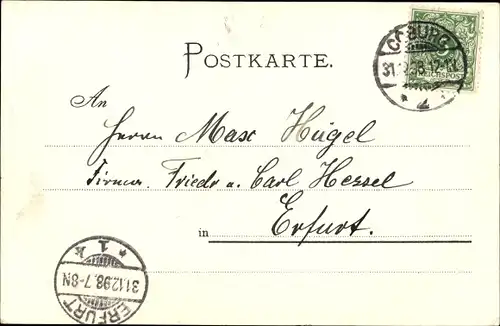 POSTKARTE.
COBURG
31.12.98.12-1N
5
REICHSPOST
An
Herrn Max Hügel
Firma. Friedr u. Carl Hessel
in Erfurt.
* 1 k
31.12.98.7-8N
ERFURT